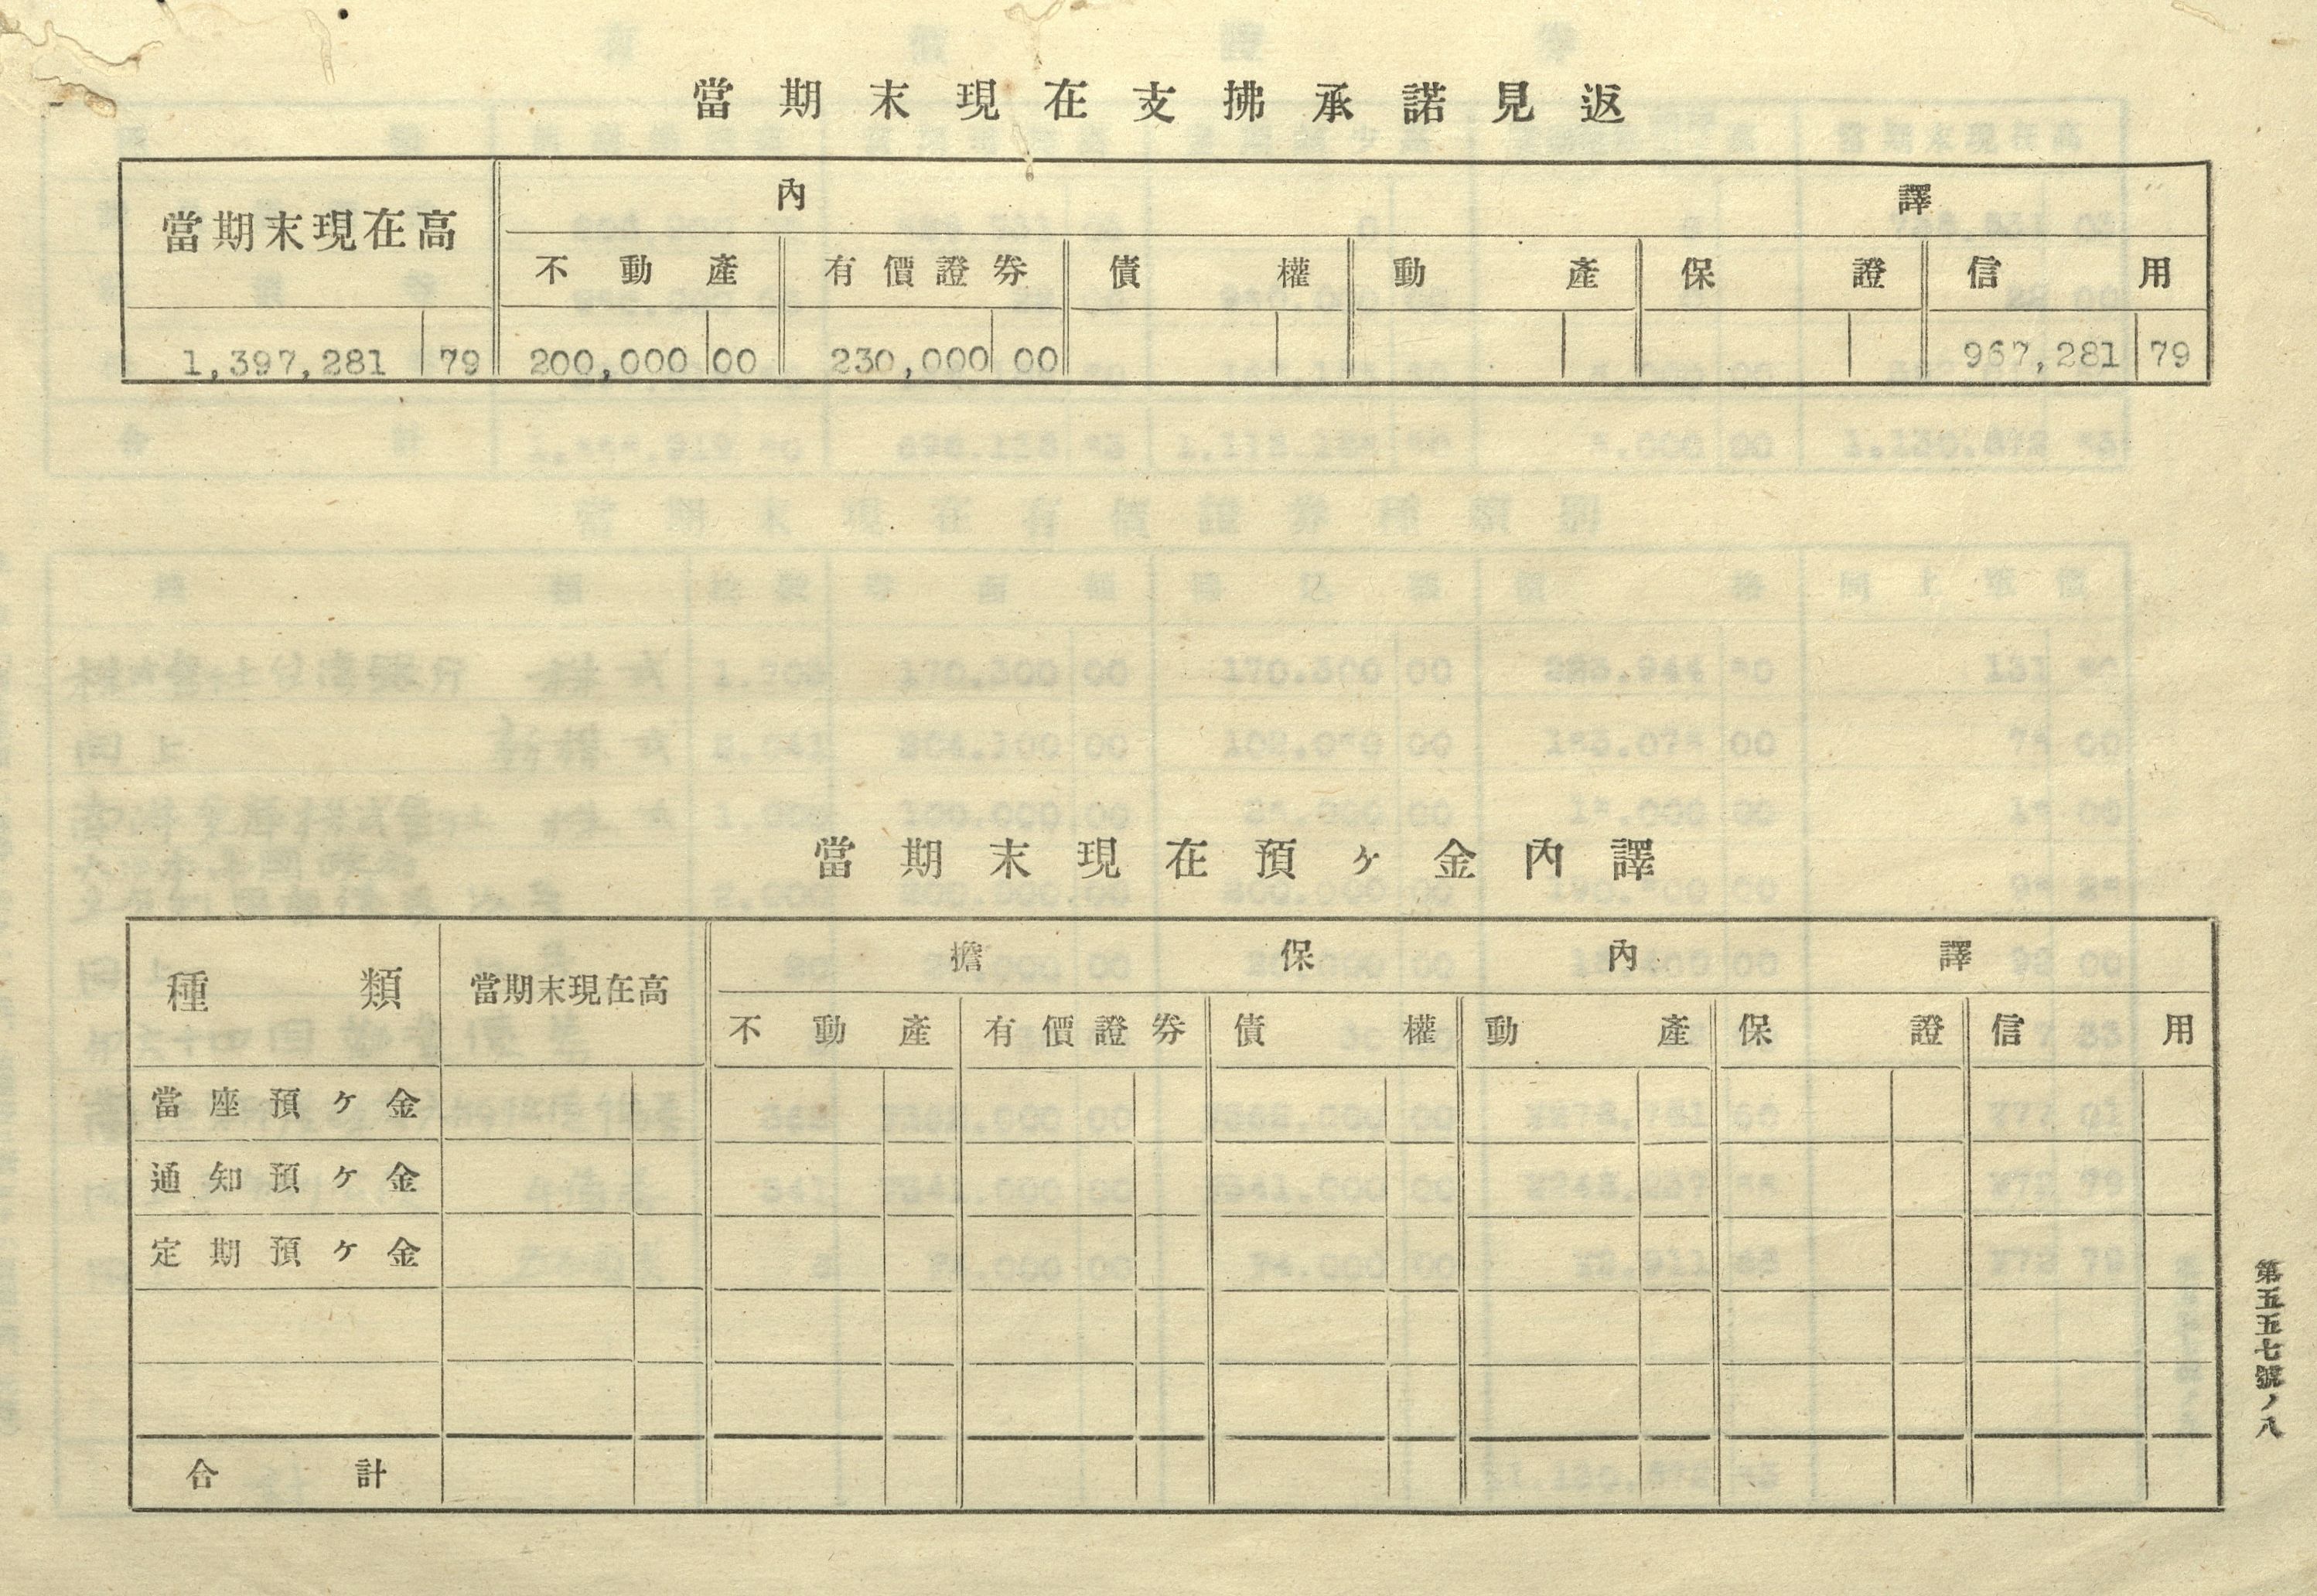 當期末現在支拂承諾見返
當期末現在高 內譯
不動產 有價證券 債權 動產 保證 信用
1,397,281 79 200,000 00 230,000 00 967,281 79
當期末現在預ヶ金內譯
種類 當期末現在高 擔保內譯
不動產 有價證券 債權 動產 保證 信用
當座預ケ金
通知預ケ金
定期預ケ金
合計
第五五七號ノ八